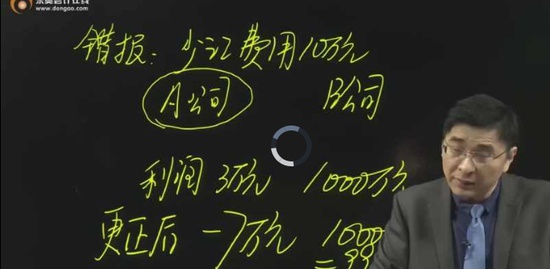 东奥会计在线
www.dongao.com
错报：少记费用10万元
A公司 B公司
利润 3万元 1000万元
更正后 -7万元 1000
=99